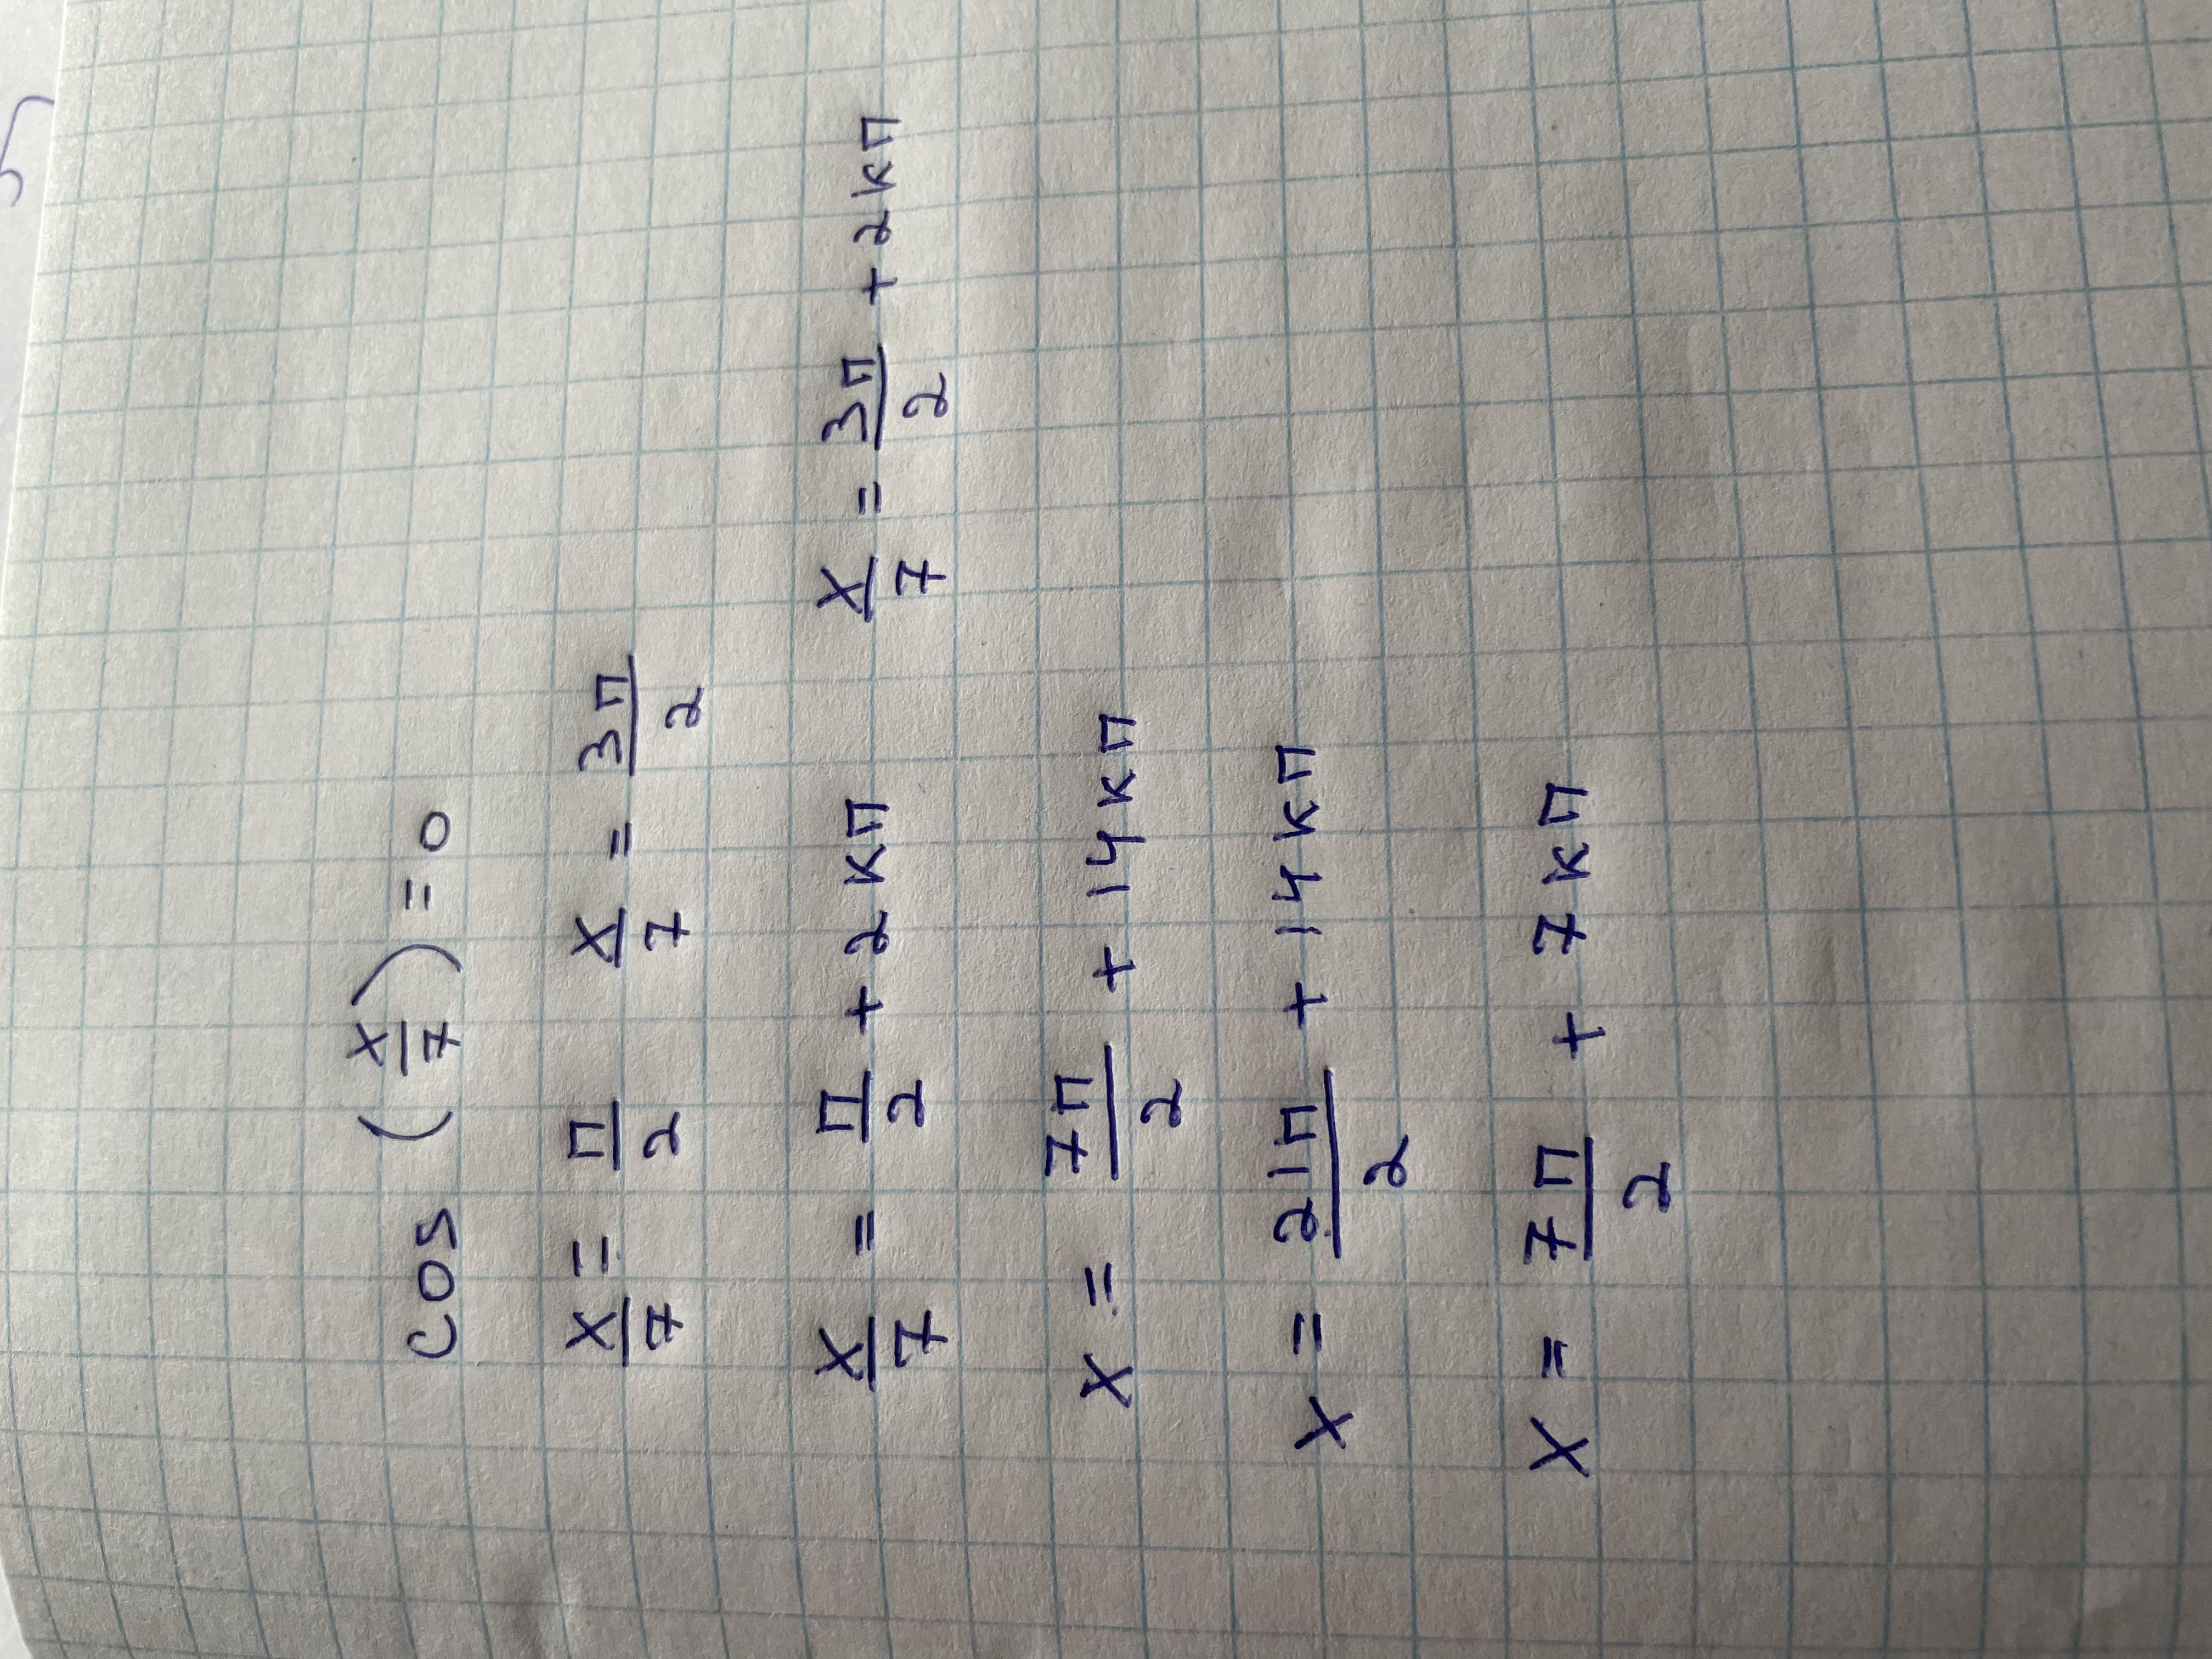 cos (x/7) = 0
x/7 = π/2 x/7 = 3π/2
x/7 = π/2 + 2kπ x/7 = 3π/2 + 2kπ
x = 7π/2 + 14kπ
x = 21π/2 + 14kπ
x = 7π/2 + 7kπ